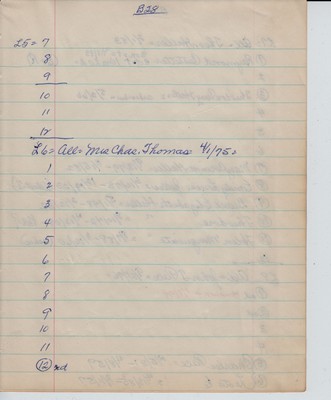 B28
L5 = 7
8
9
10
11
12
L6 = All = Mrs Chas. Thomas 4/1/75 =
1
2
3
4
5
6
7
8
9
10
11
12